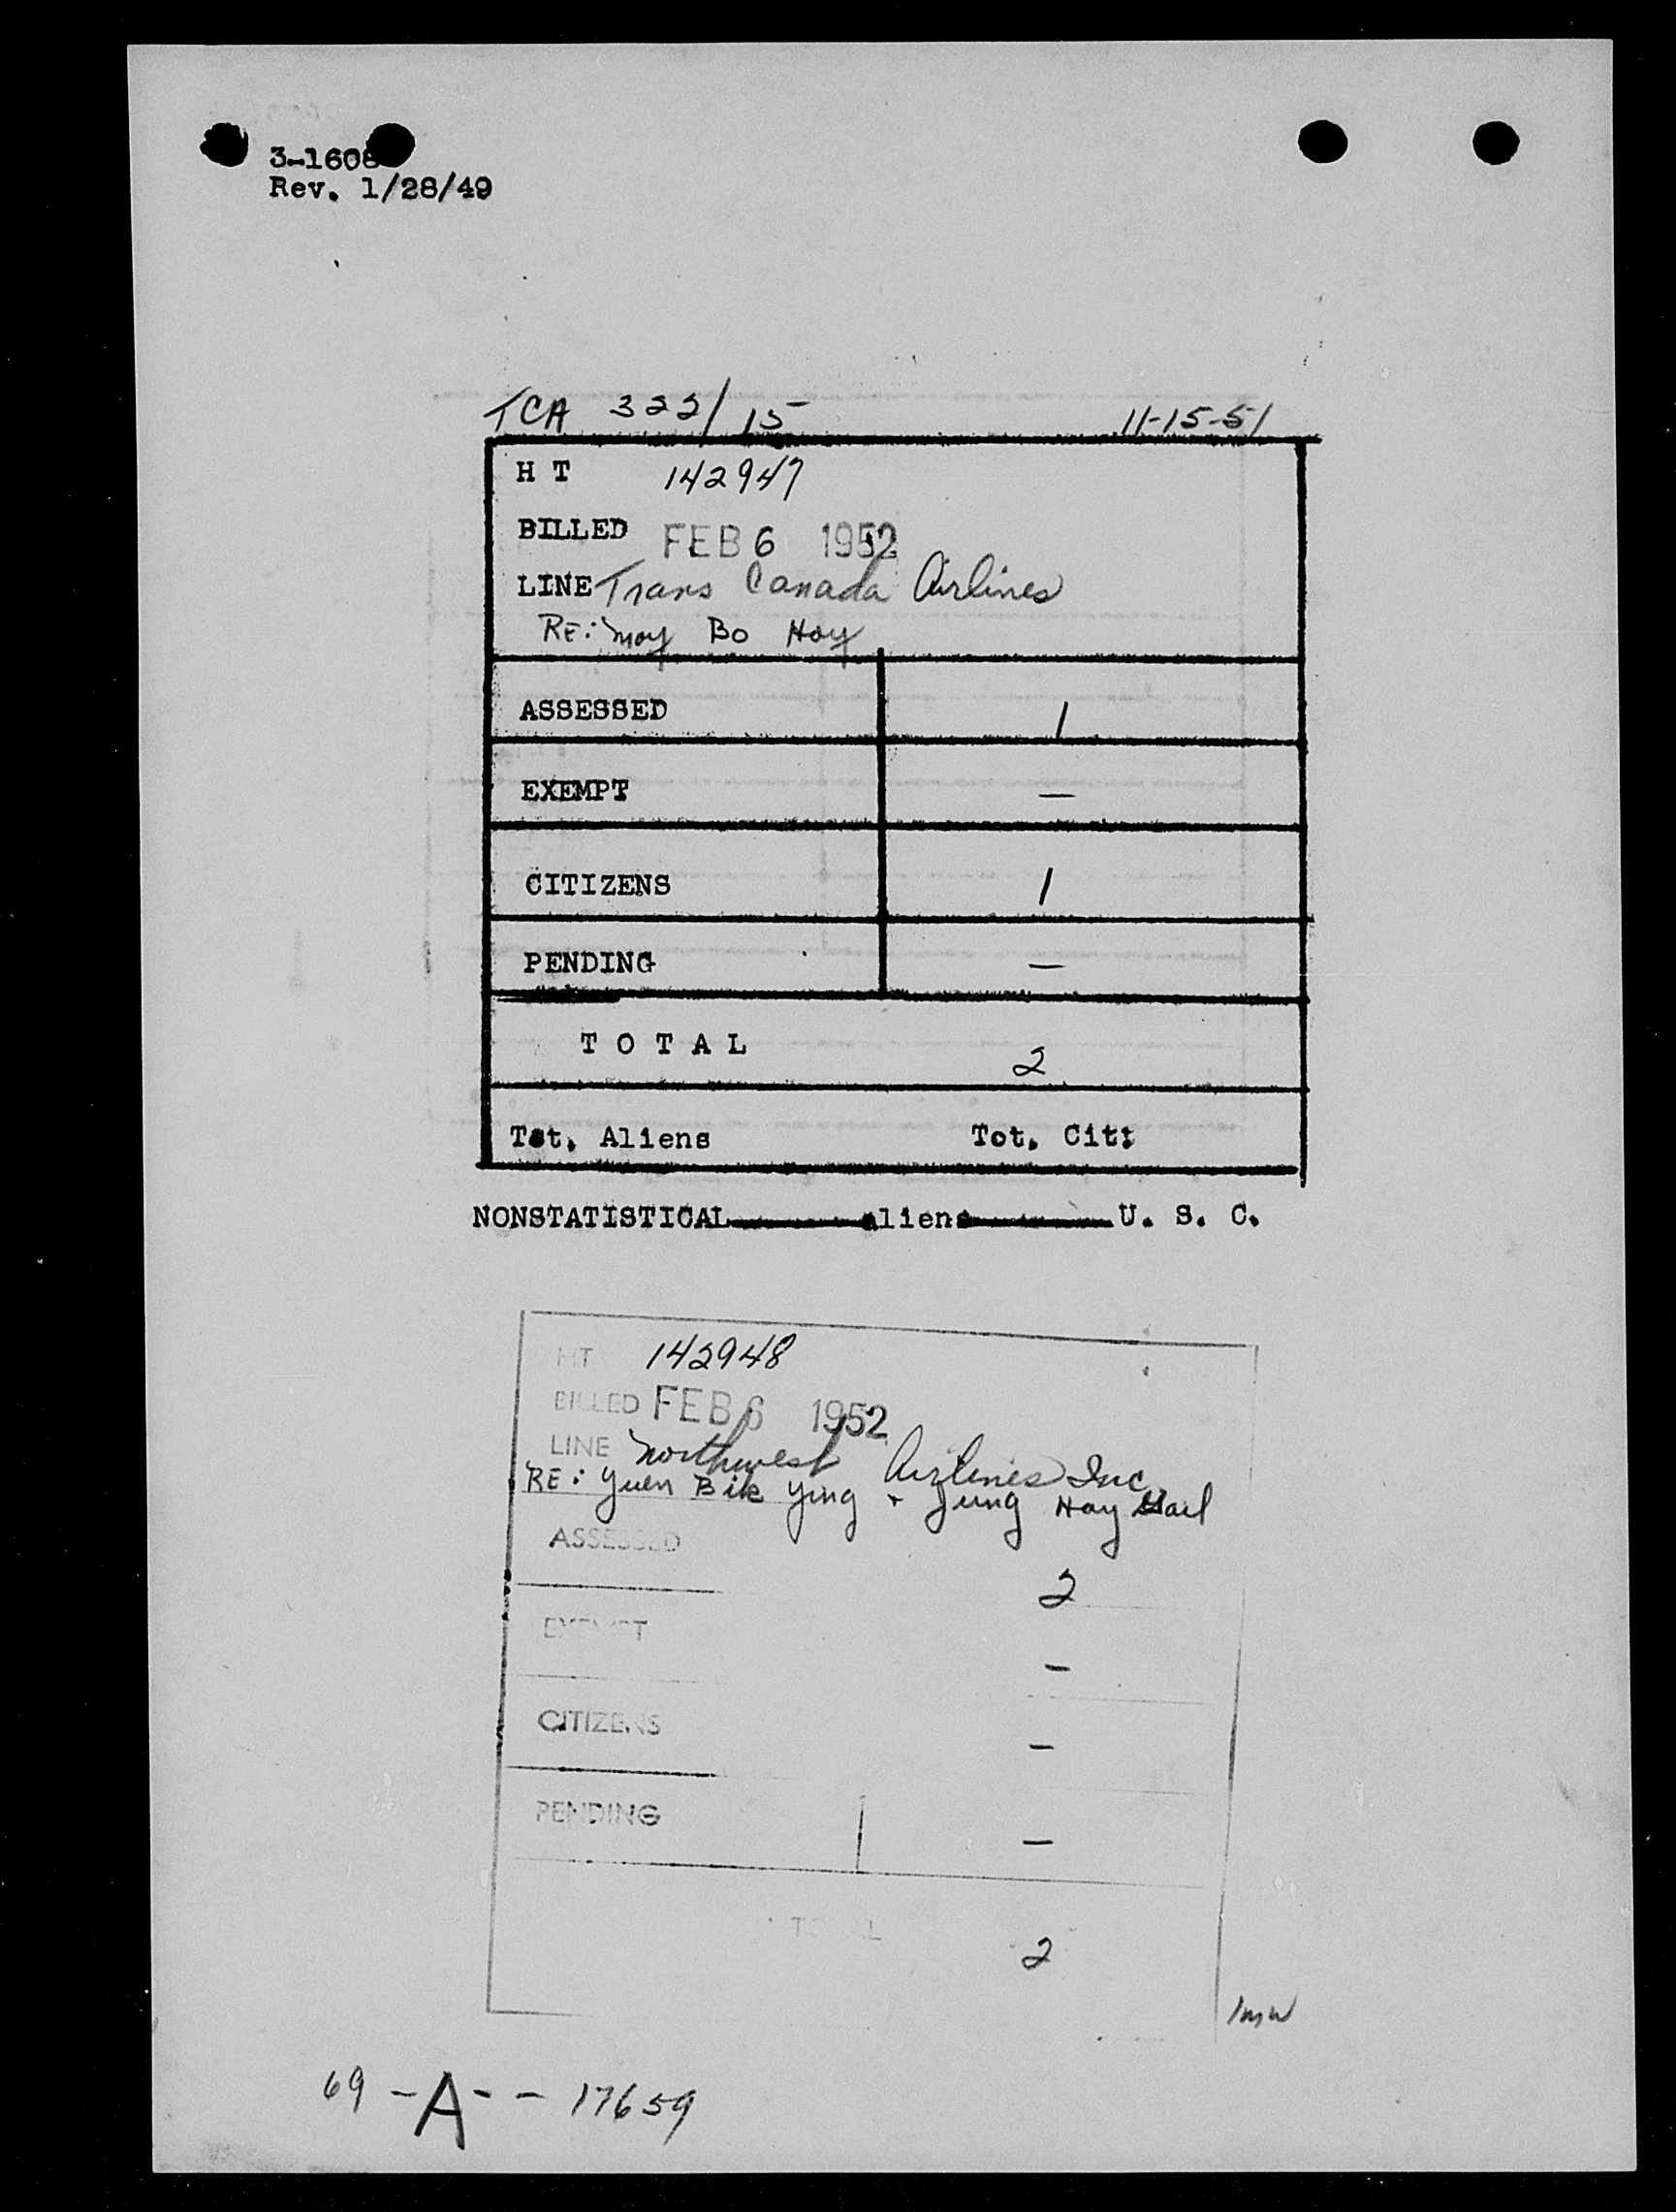 3-1608
Rev. 1/28/49
TCA 322/15 11-15-51
H T 142947
BILLED FEB 6 1952
LINE Trans Canada Airlines
RE: Moy Bo Hoy
ASSESSED 1
EXEMPT —
CITIZENS 1
PENDING —
T O T A L 2
Tot. Aliens Tot. Cit:
NONSTATISTICAL aliens U. S. C.
HT 142948
BILLED FEB 6 1952
LINE Northwest Airlines Inc.
RE: Yuen Bik Ying + Jung Hay
ASSESSED 2
EXEMPT —
CITIZENS —
PENDING —
TOTAL 2
69 - A - - 17659